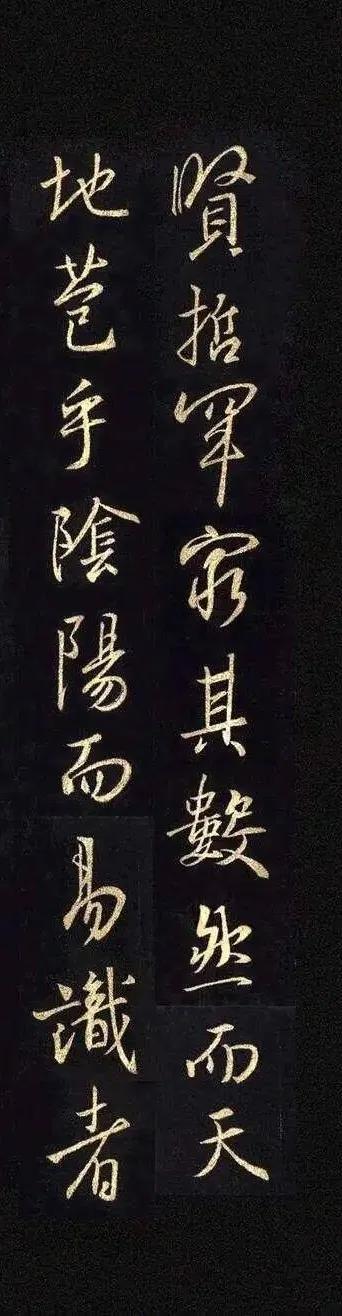 賢哲罕窮其數然而天
地苞乎陰陽而易識者